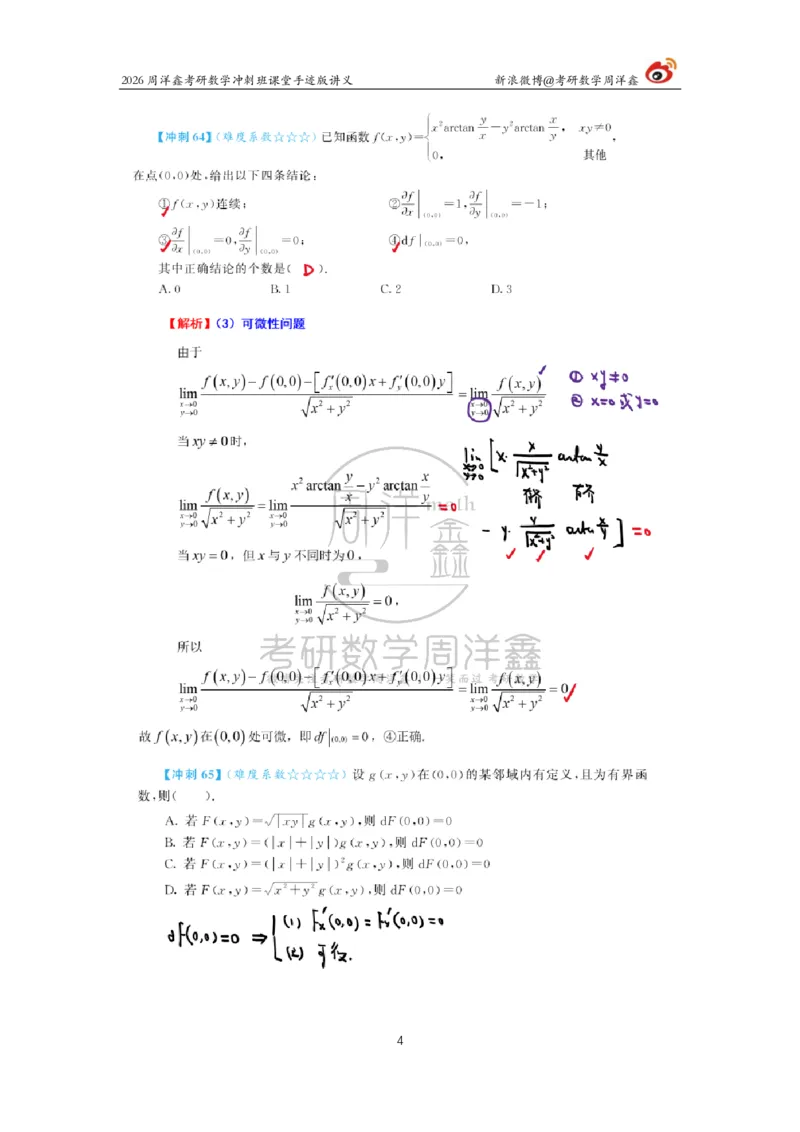 2026周洋鑫考研数学冲刺班课堂手迹版讲义 新浪微博@考研数学周洋鑫
【冲刺 64】(难度系数☆☆☆) 已知函数 f(x,y)={x²arctan y/x − y²arctan x/y, xy≠0, 0, 其他
在点(0,0)处,给出以下四条结论:
①f(x,y)连续; ②∂f/∂x|(0,0)=1,∂f/∂y|(0,0)=−1;
③∂f/∂x|(0,0)=0,∂f/∂y|(0,0)=0; ④df|(0,0)=0,
其中正确结论的个数是( D ).
A. 0 B. 1 C. 2 D. 3
【解析】(3) 可微性问题
由于
lim x→0 y→0 (f(x,y)−f(0,0)−[f′x(0,0)x+f′y(0,0)y])/√(x²+y²) = lim x→0 y→0 f(x,y)/√(x²+y²)
① xy≠0
② x=0或y=0
当xy≠0时,
lim x→0 y→0 f(x,y)/√(x²+y²) = lim x→0 y→0 (x²arctan y/x − y²arctan x/y)/√(x²+y²) =0
lim x→0 y→0 [x· x/√(x²+y²) arctan y/x
有界 有界
− y· y/√(x²+y²) arctan x/y] =0
当xy=0,但x与y不同时为0,
lim x→0 y→0 f(x,y)/√(x²+y²) =0,
所以
lim x→0 y→0 (f(x,y)−f(0,0)−[f′x(0,0)x+f′y(0,0)y])/√(x²+y²) = lim x→0 y→0 f(x,y)/√(x²+y²) =0
故f(x,y)在(0,0)处可微,即df|(0,0)=0,④正确.
【冲刺 65】(难度系数☆☆☆☆) 设 g(x,y)在(0,0)的某邻域内有定义,且为有界函
数,则( ).
A. 若 F(x,y)=√|xy| g(x,y),则 dF(0,0)=0
B. 若 F(x,y)=(|x|+|y|)g(x,y),则 dF(0,0)=0
C. 若 F(x,y)=(|x|+|y|)²g(x,y),则 dF(0,0)=0
D. 若 F(x,y)=√(x²+y²) g(x,y),则 dF(0,0)=0
dF(0,0)=0 ⇒ { (1) F′x(0,0)=F′y(0,0)=0
(2) 可微.
周洋鑫
math
考研数学周洋鑫
4